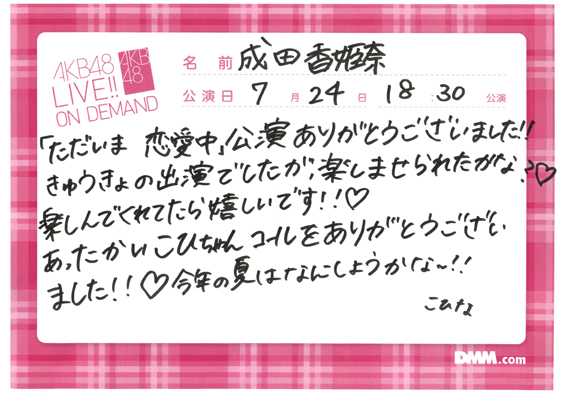 AKB48
LIVE!!
ON DEMAND
AKB
48
名前 成田香姫奈
公演日 7月24日 18:30 公演
「ただいま 恋愛中」公演ありがとうございました!!
きゅうきょの出演でしたが、楽しませられたかな?♡
楽しんでくれてたら嬉しいです!!♡
あったかいこひちゃんコールをありがとうござい
ました!!♡今年の夏はなにしようかな~!!
こひな
DMM.com